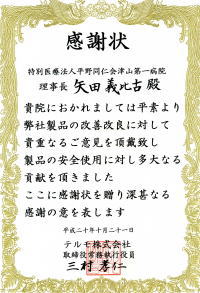 感謝状
特別医療法人平野同仁会津山第一病院
理事長 矢田義比古 殿
貴院におかれましては平素より
弊社製品の改善改良に対して
貴重なるご意見を頂戴致し
製品の安全使用に対し多大なる
貢献を頂きました
ここに感謝状を贈り深甚なる
感謝の意を表します
平成二十年十月二十一日
テルモ株式会社
取締役常務執行役員
三村孝仁